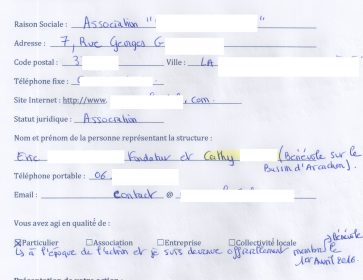 Raison Sociale : Association "
Adresse : 7, Rue Georges G
Code postal : 3 Ville : LA
Téléphone fixe :
Site Internet : http://www. .com
Statut juridique : Association
Nom et prénom de la personne représentant la structure :
Eric Fondateur et Cathy (Bénévole sur le
Bassin d'Arcachon)
Téléphone portable : 06
Email : contact @
Vous avez agi en qualité de :
Bénévole
☒Particulier ☐Association ☐Entreprise ☐Collectivité locale
à l'époque de l'action et je suis devenue officiellement membre le
1er Avril 2016.